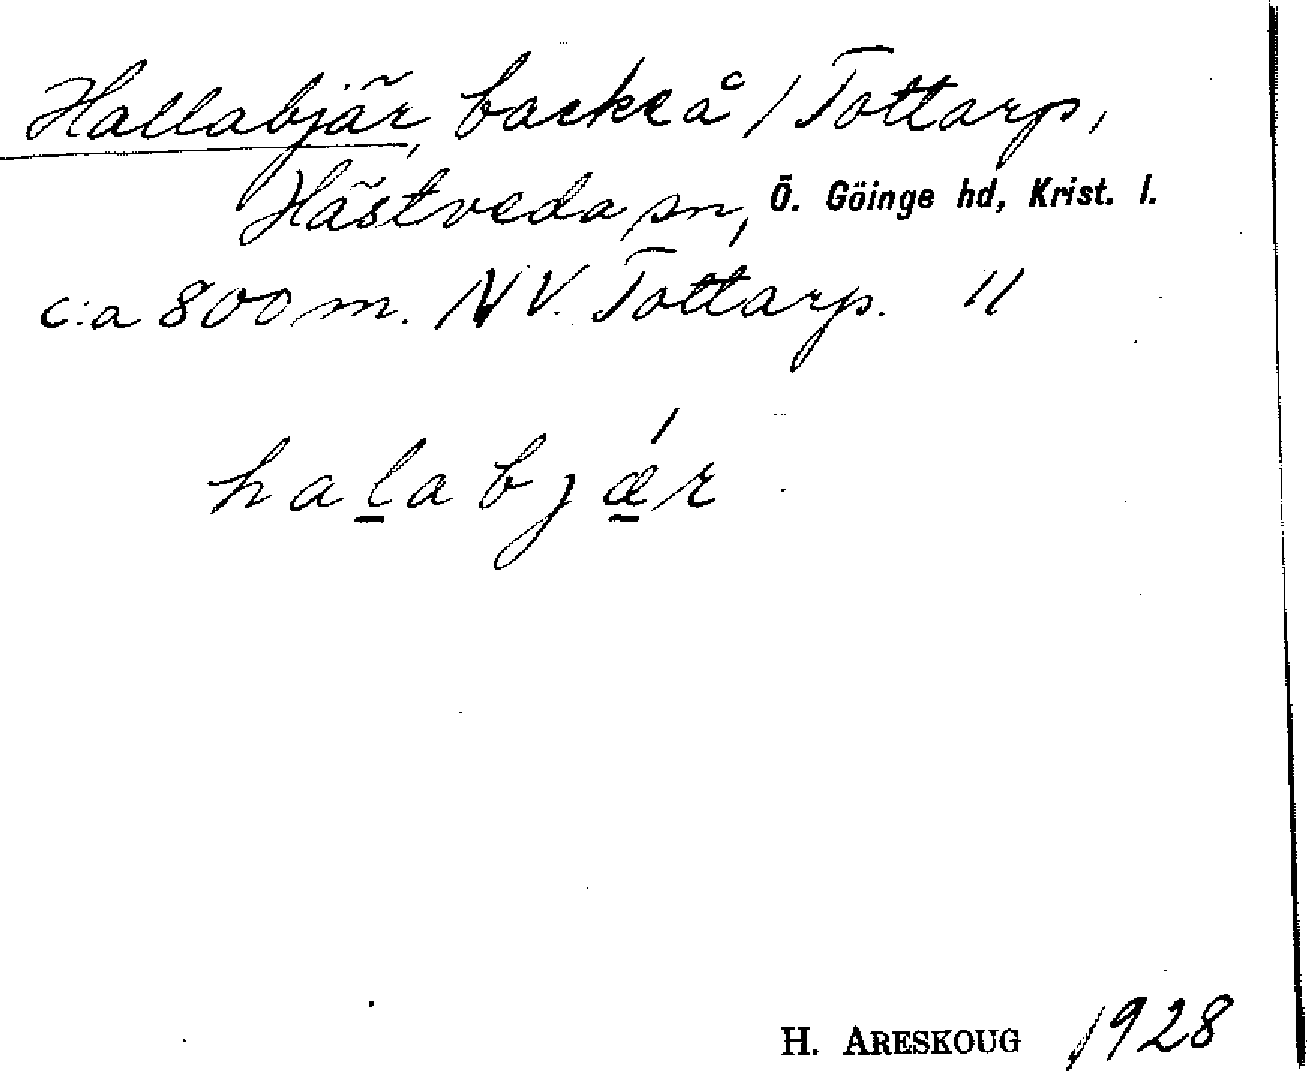 Hallabjär, backe å / Tottarp,
Hästveda sn, Ö. Göinge hd, Krist. l.
c:a 800 m. NV. Tottarp. //
halabjǽr
H. ARESKOUG 1928